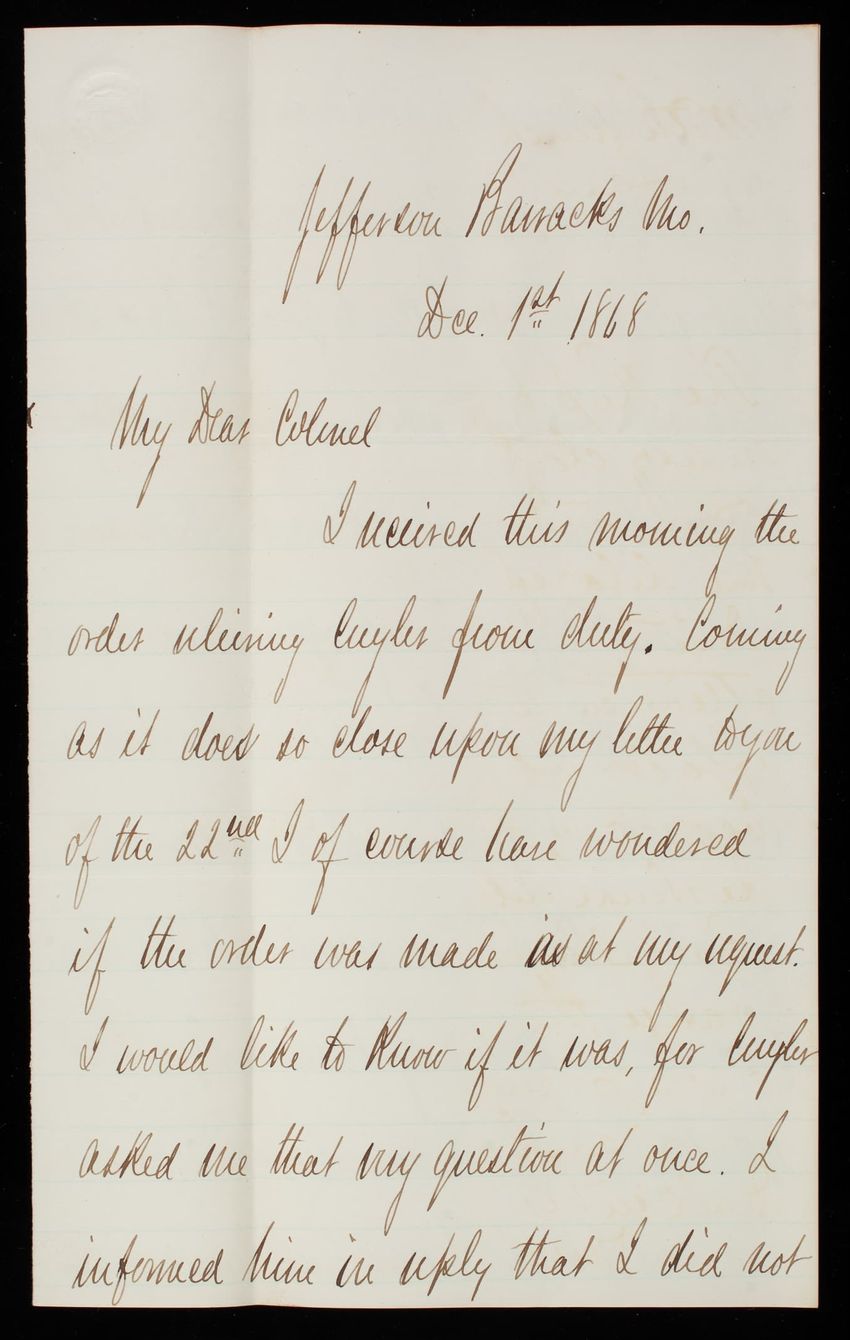 Jefferson Barracks Mo.
Dec. 1st 1868
My Dear Colonel
I received this morning the
order relieving Cuyler from duty. Coming
as it does so close upon my letter to you
of the 22nd I of course have wondered
if the order was made as at my request.
I would like to know if it was, for Cuyler
asked me that my question at once. I
informed him in reply that I did not